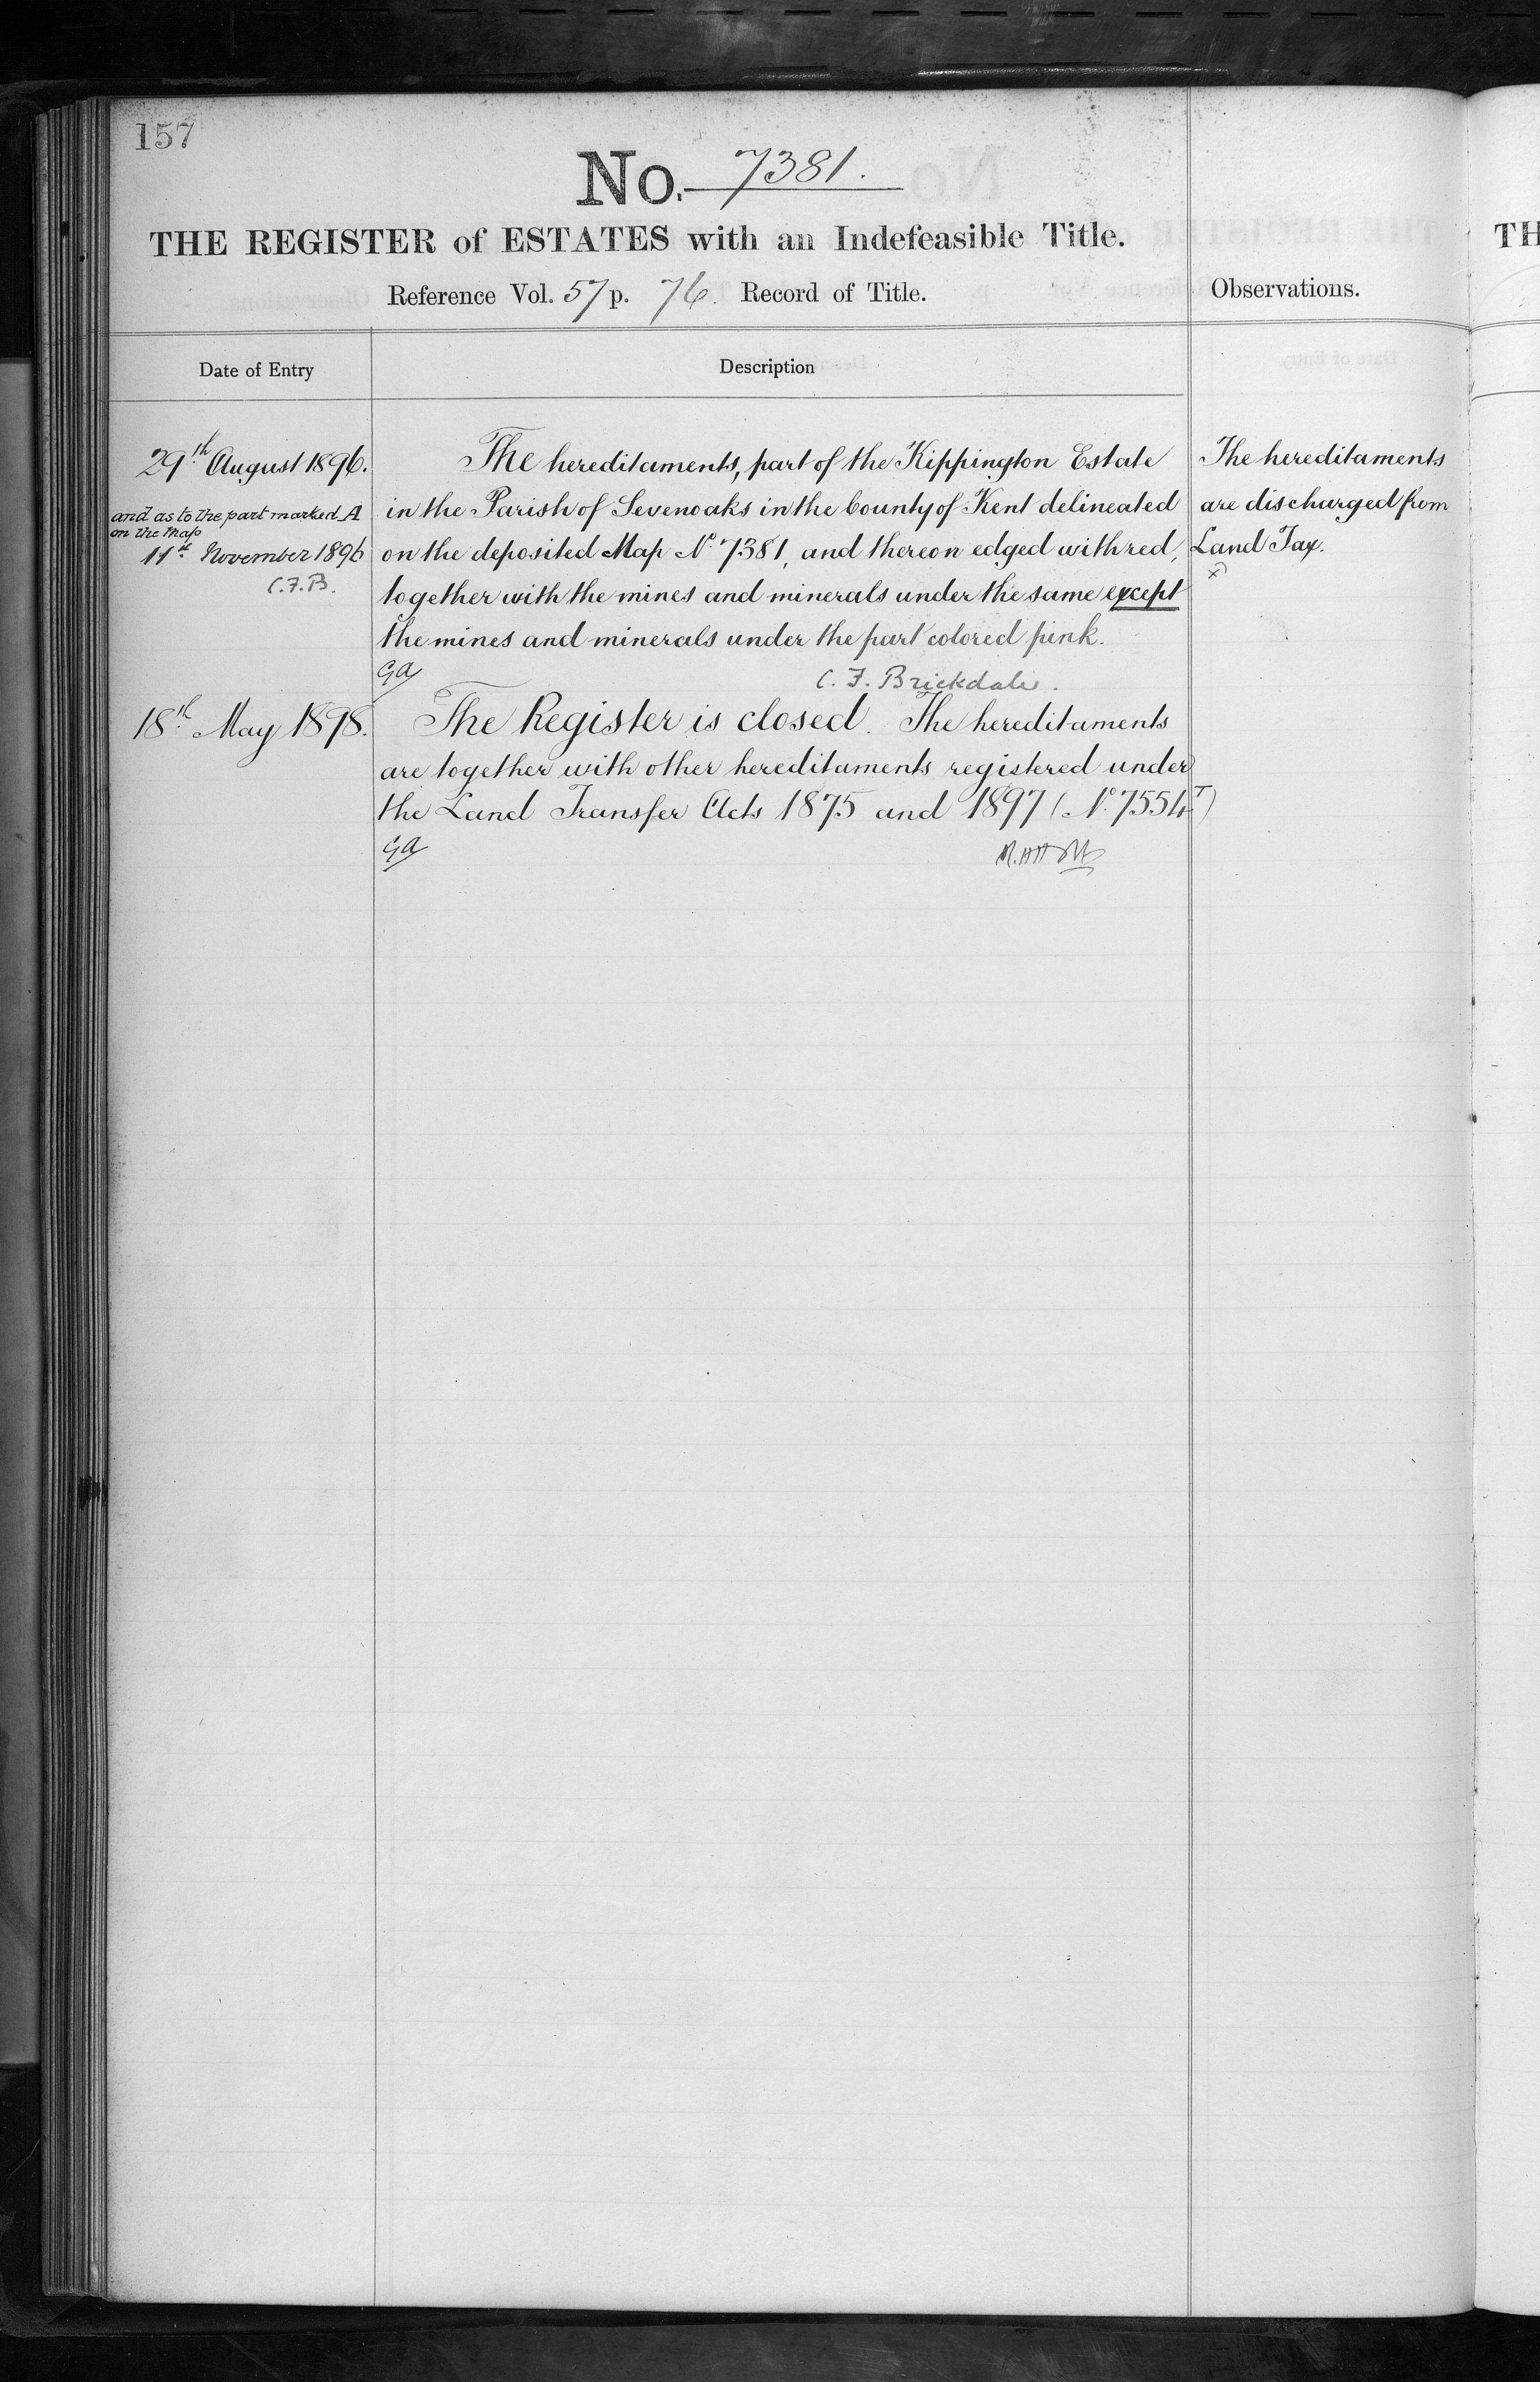 157
No. 7381.
THE REGISTER of ESTATES with an Indefeasible Title.
Reference Vol. 57 p. 76. Record of Title.
Observations.
Date of Entry
Description
29th August 1896.
and as to the part marked A
on the Map
11th November 1896
C.F.B.
The hereditaments, part of the Kippington Estate
in the Parish of Sevenoaks in the County of Kent delineated
on the deposited Map No. 7381, and thereon edged with red,
together with the mines and minerals under the same except
the mines and minerals under the part colored pink.
GA
C. F. Brickdale.
The hereditaments
are discharged from
Land Tax.
18th May 1898.
The Register is closed. The hereditaments
are together with other hereditaments registered under
the Land Transfer Acts 1875 and 1897 (No. 7554T)
GA
TH